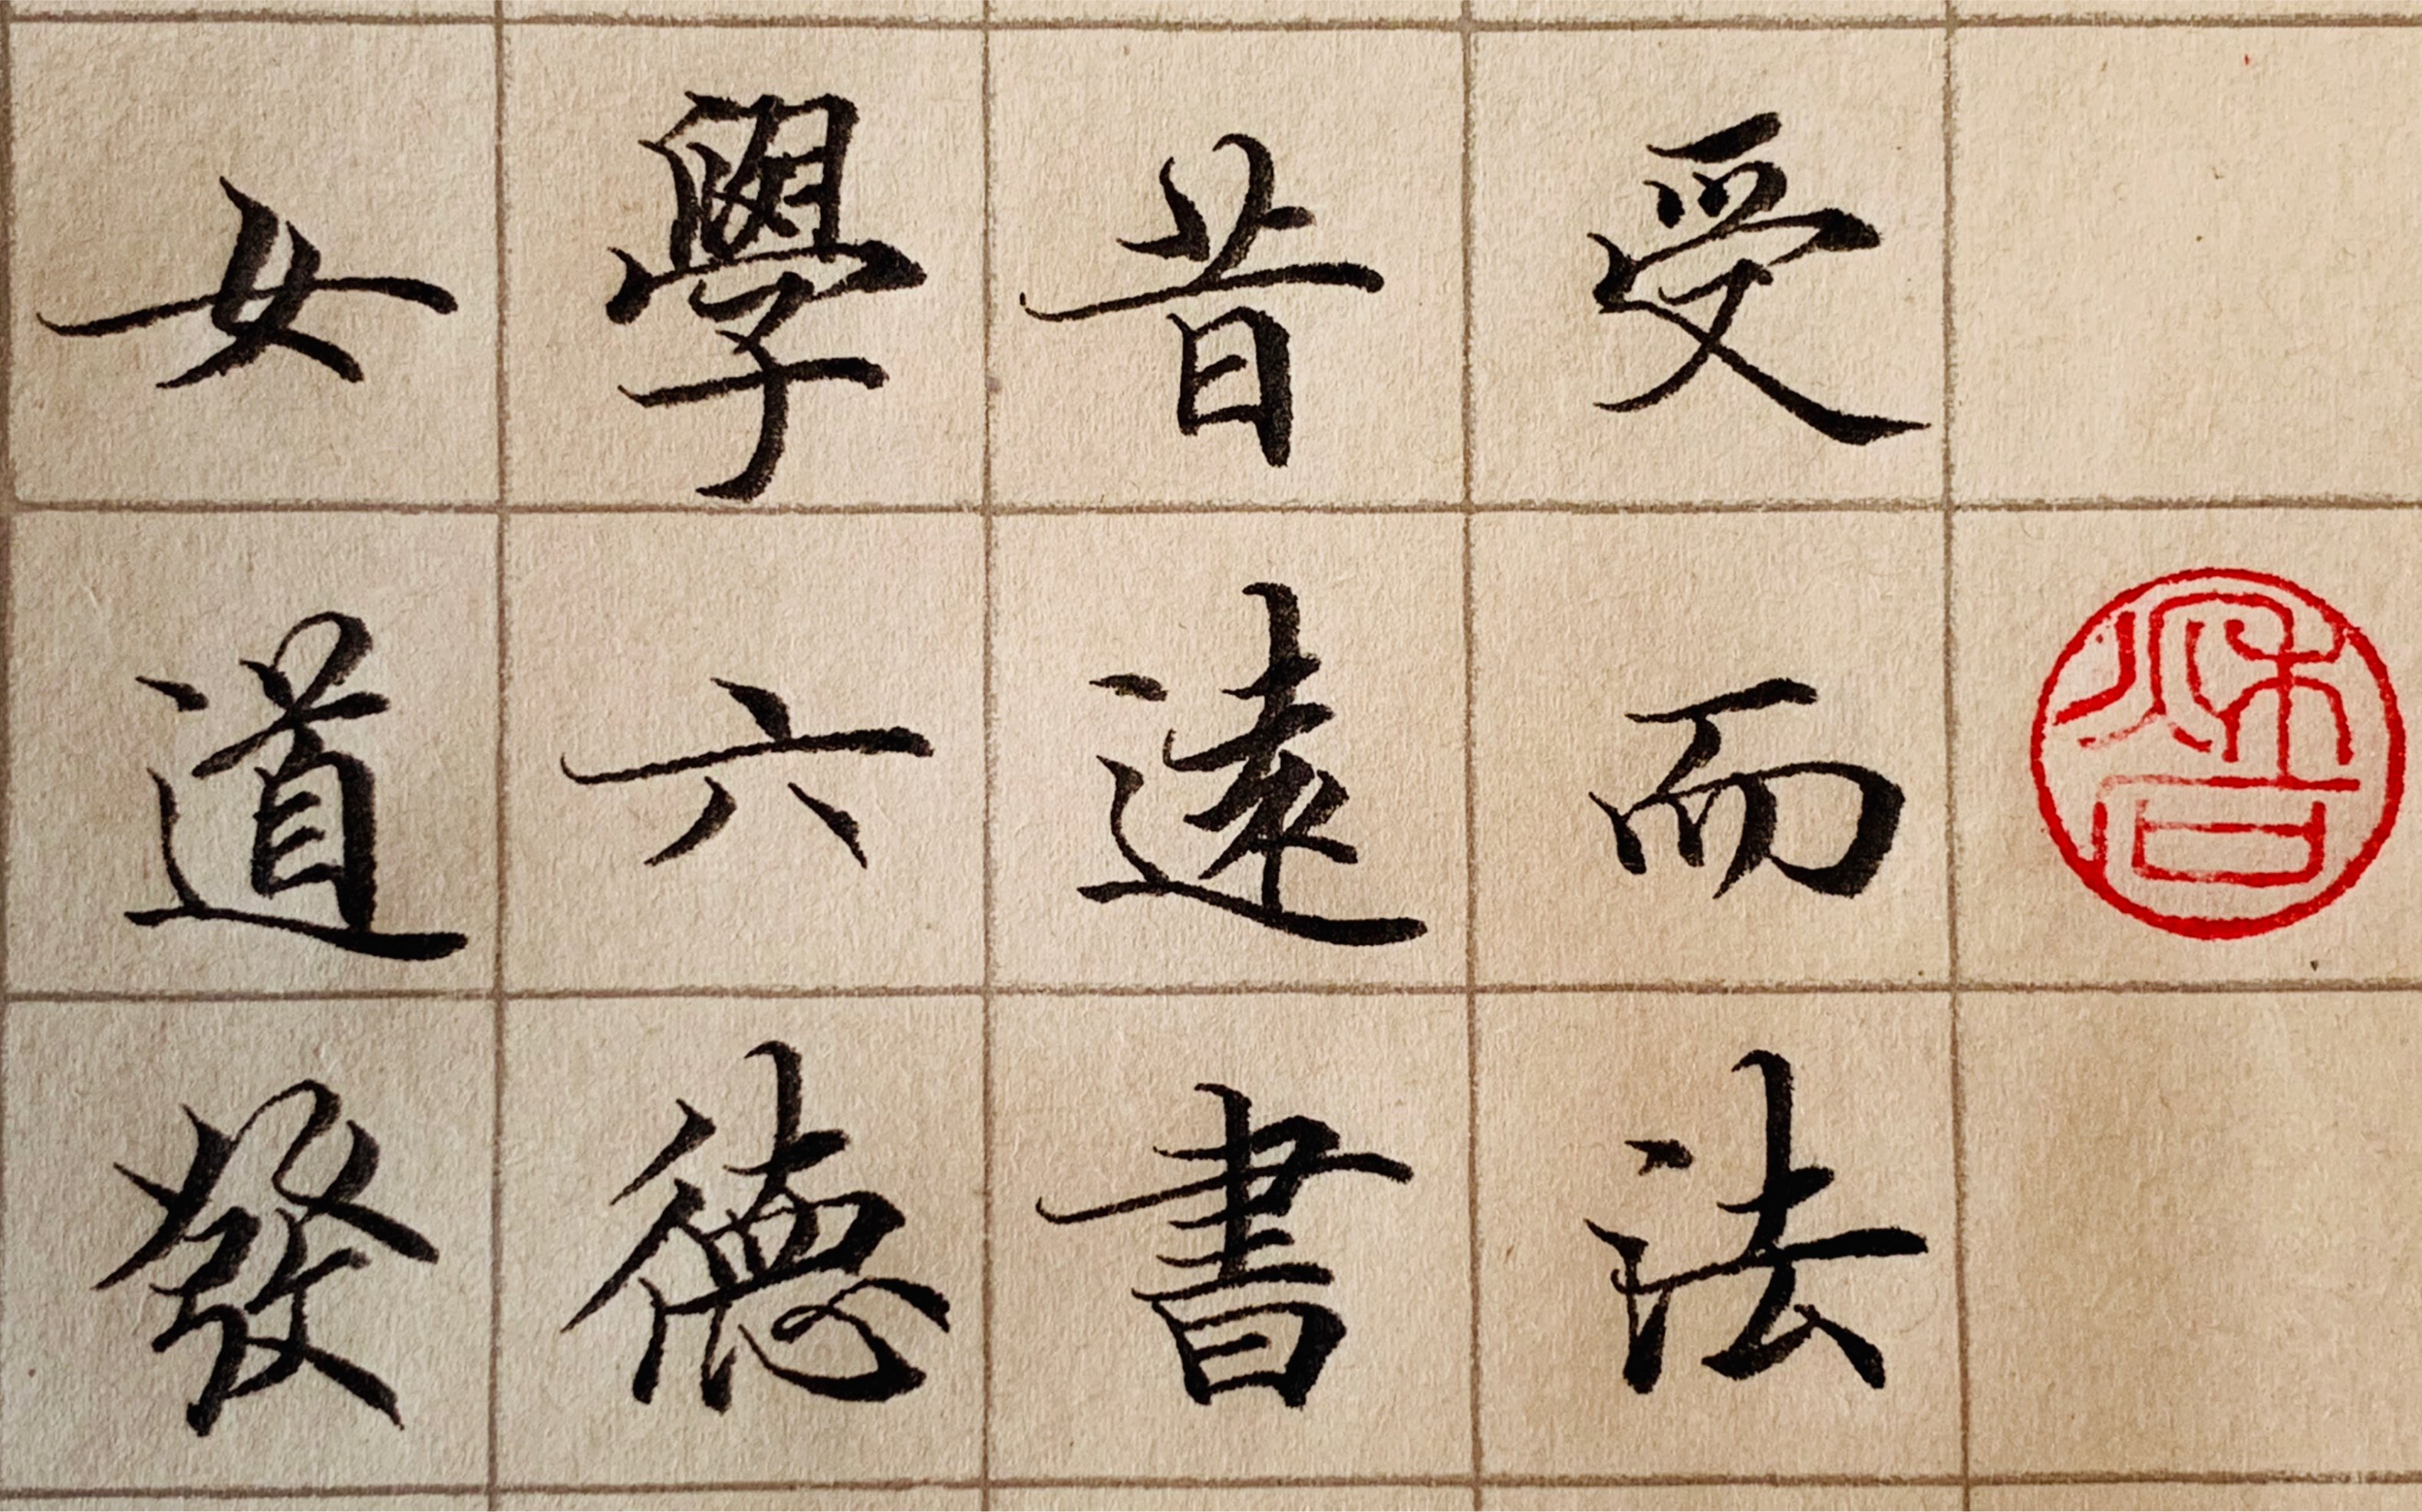 受而法
昔遠書
學六德
女道發